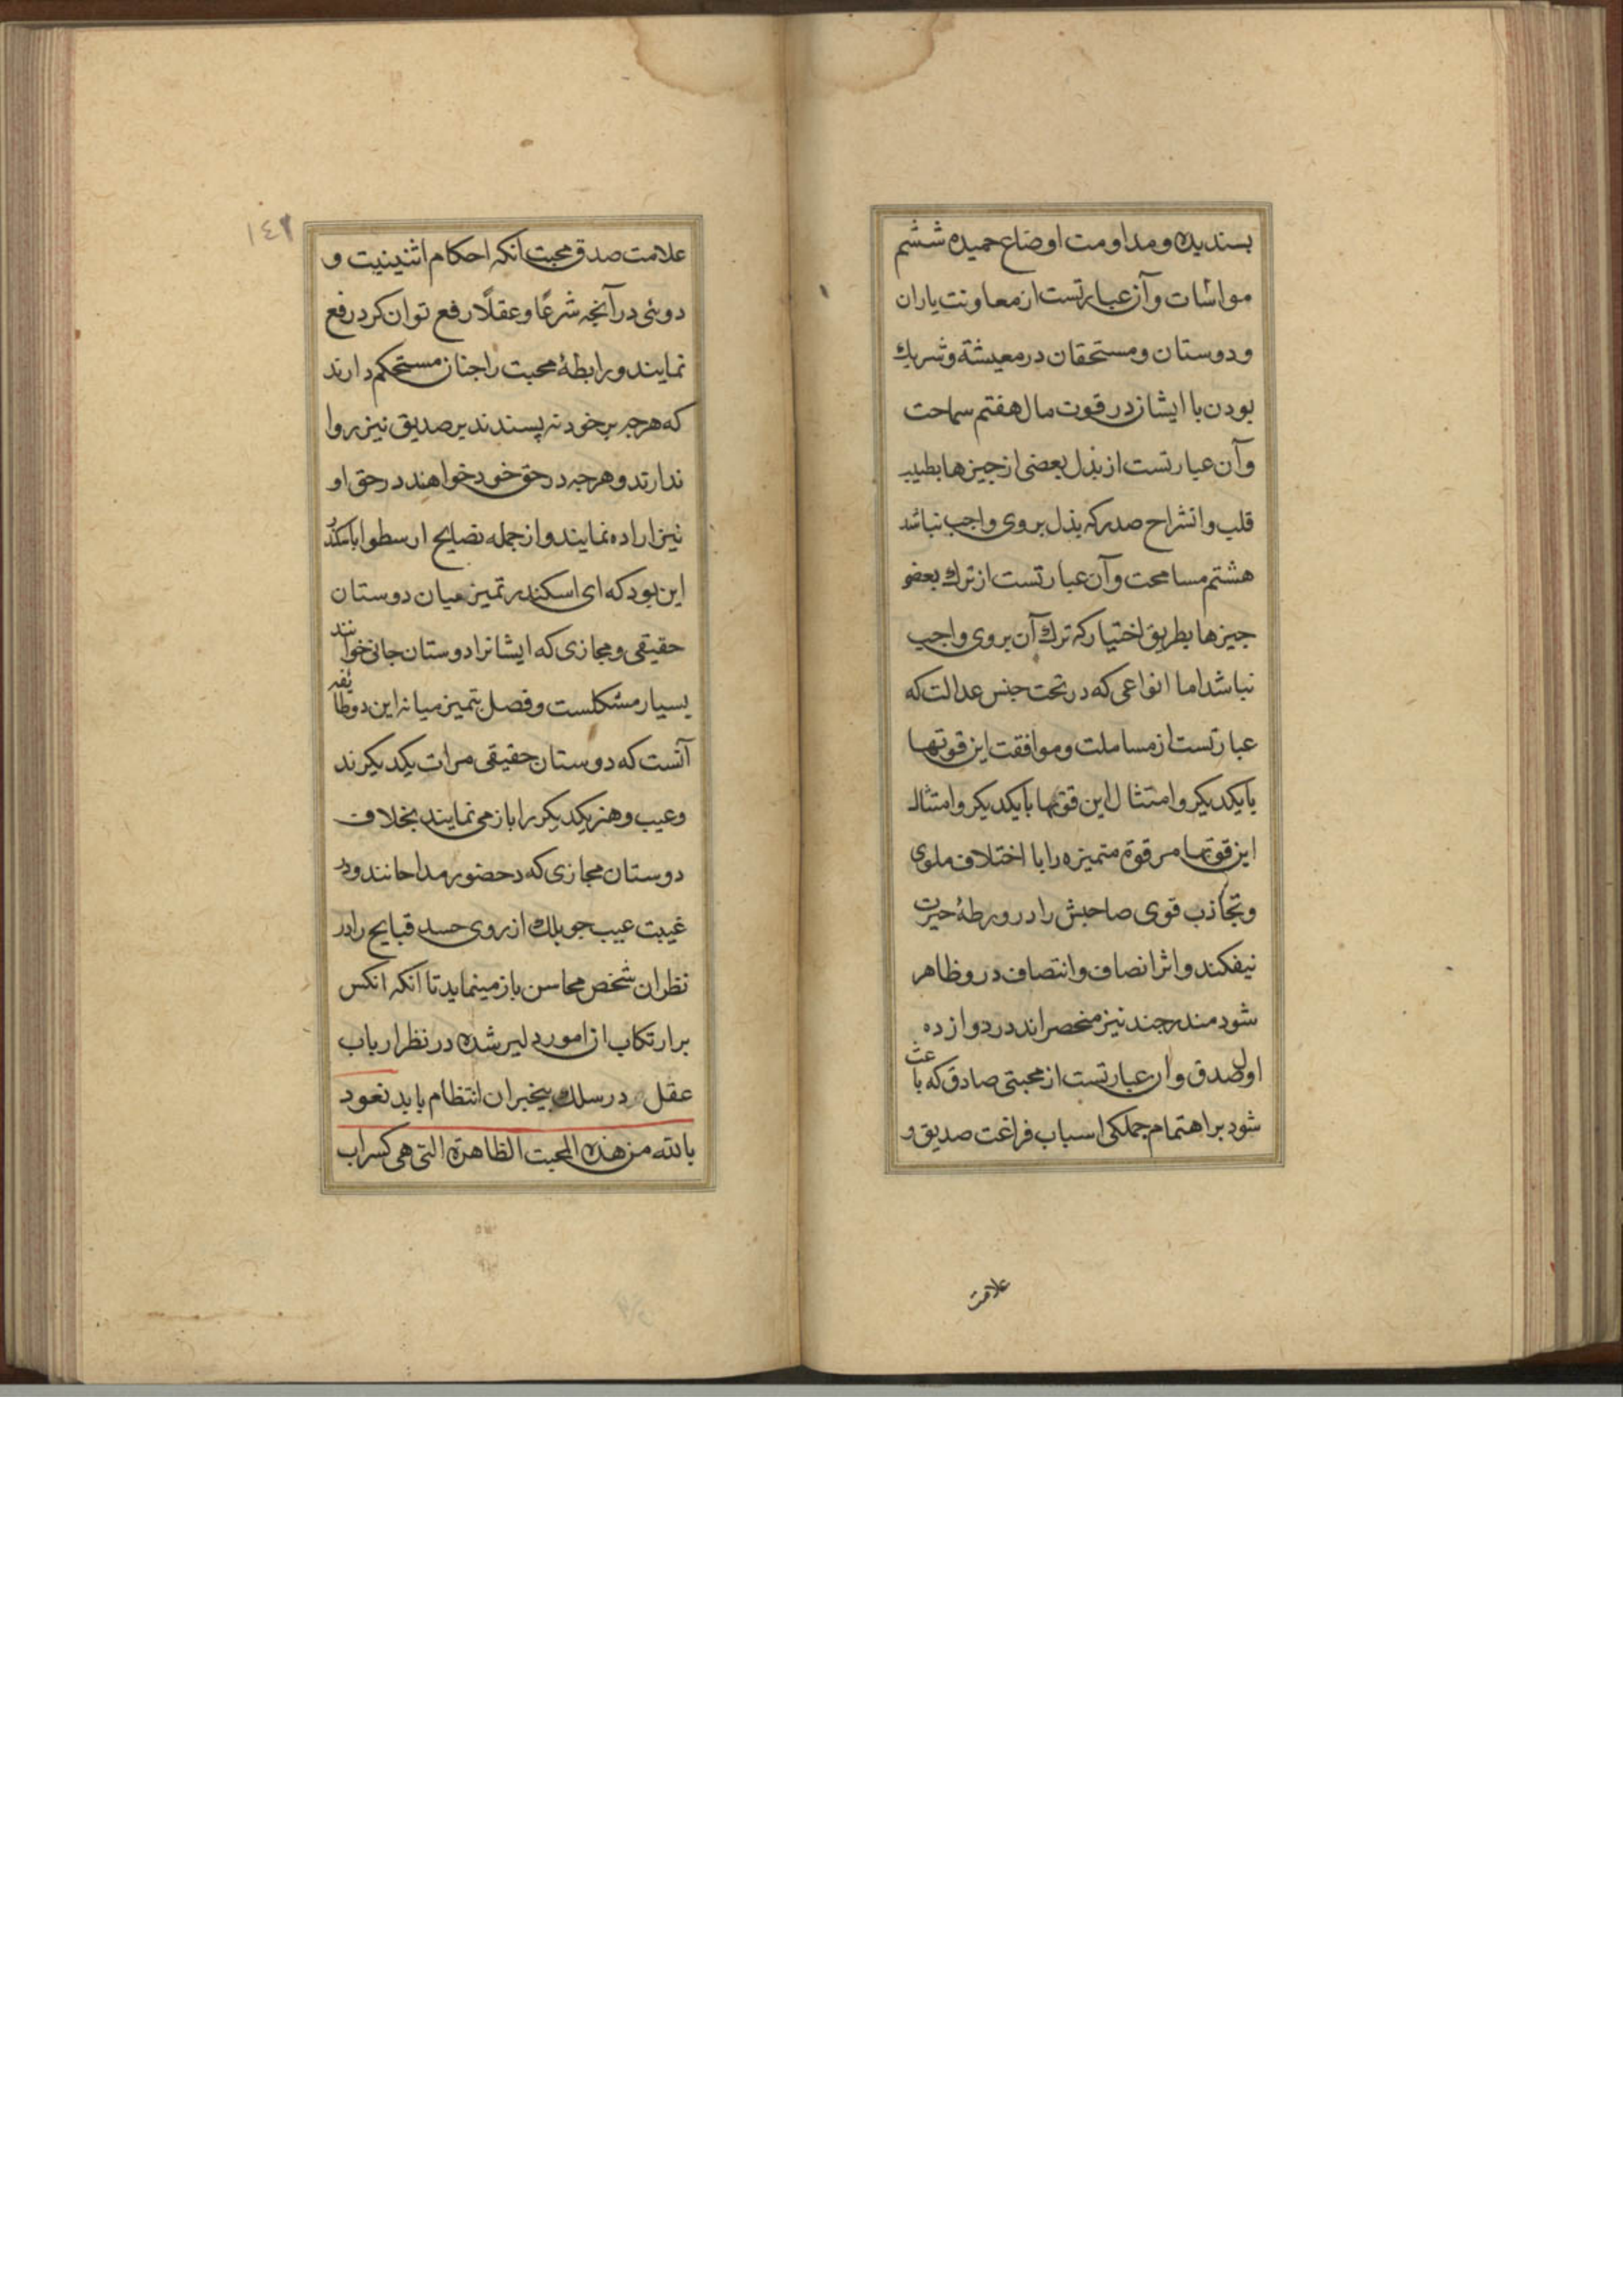 بسندیده ومداومت اوضاع حمیده ششم
مواسات وآن عبارتست از معاونت یاران
ودوستان ومستحقان در معیشة وشریك
بودن با ایشان در قوت مال هفتم سماحت
وآن عبارتست از بذل بعضی از جیزها بطیب
قلب وانشراح صدر که بذل بر وی واجب نباشد
هشتم مسامحت وآن عبارتست از ترك بعضی
جیزها بطریق اختیار که ترك آن بر وی واجب
نباشد اما انواعی که در تحت جنس عدالت که
عبارتست از مساملت وموافقت این قوتها
بایکدیکر وامتثال این قوتها بایکدیکر وامتثال
این قوتها مر قوة متمیزه را با اختلاف ملوی
وتجاذب قوی صاحبش را در ورطهٔ حیرت
نیفکند واثر انصاف وانتصاف در و ظاهر
شود مندرجند نیز منحصراند در دوازده
اول صدق وان عبارتست از محبتی صادق که باعث
شود بر اهتمام جملکی اسباب فراغت صدیق و
علامت
١٤١
علامت صدق محبت انکه احکام اثنینیت و
دوئی در آنجه شرعًا وعقلًا رفع توان کرد رفع
نمایند ورابطهٔ محبت را جنان مستحکم دارند
که هرجه بر خود نه پسندند بر صدیق نیز روا
ندارند وهرجه در حق خود خواهند در حق او
نیز اراده نمایند واز جمله نصایح ارسطو با اسکندر
این بود که ای اسکندر تمیز میان دوستان
حقیقی ومجازی که ایشانرا دوستان جانی خوانند
بسیار مشکلست وفصل تمیز میانه این دو طایفه
آنست که دوستان حقیقی مرات یکدیکرند
وعیب وهنر یکدیکر را باز می نمایند بخلاف
دوستان مجازی که در حضور مداحانند ودر
غیبت عیب جو بلك از روی حسد قبایح را در
نظر ان شخص محاسن باز مینماید تا انکه انکس
بر ارتکاب از امور دلیر شده در نظر ارباب
عقل در سلك بیخبران انتظام یابد نعوذ
بالله من هذه المحبت الظاهرة التی هی کسراب